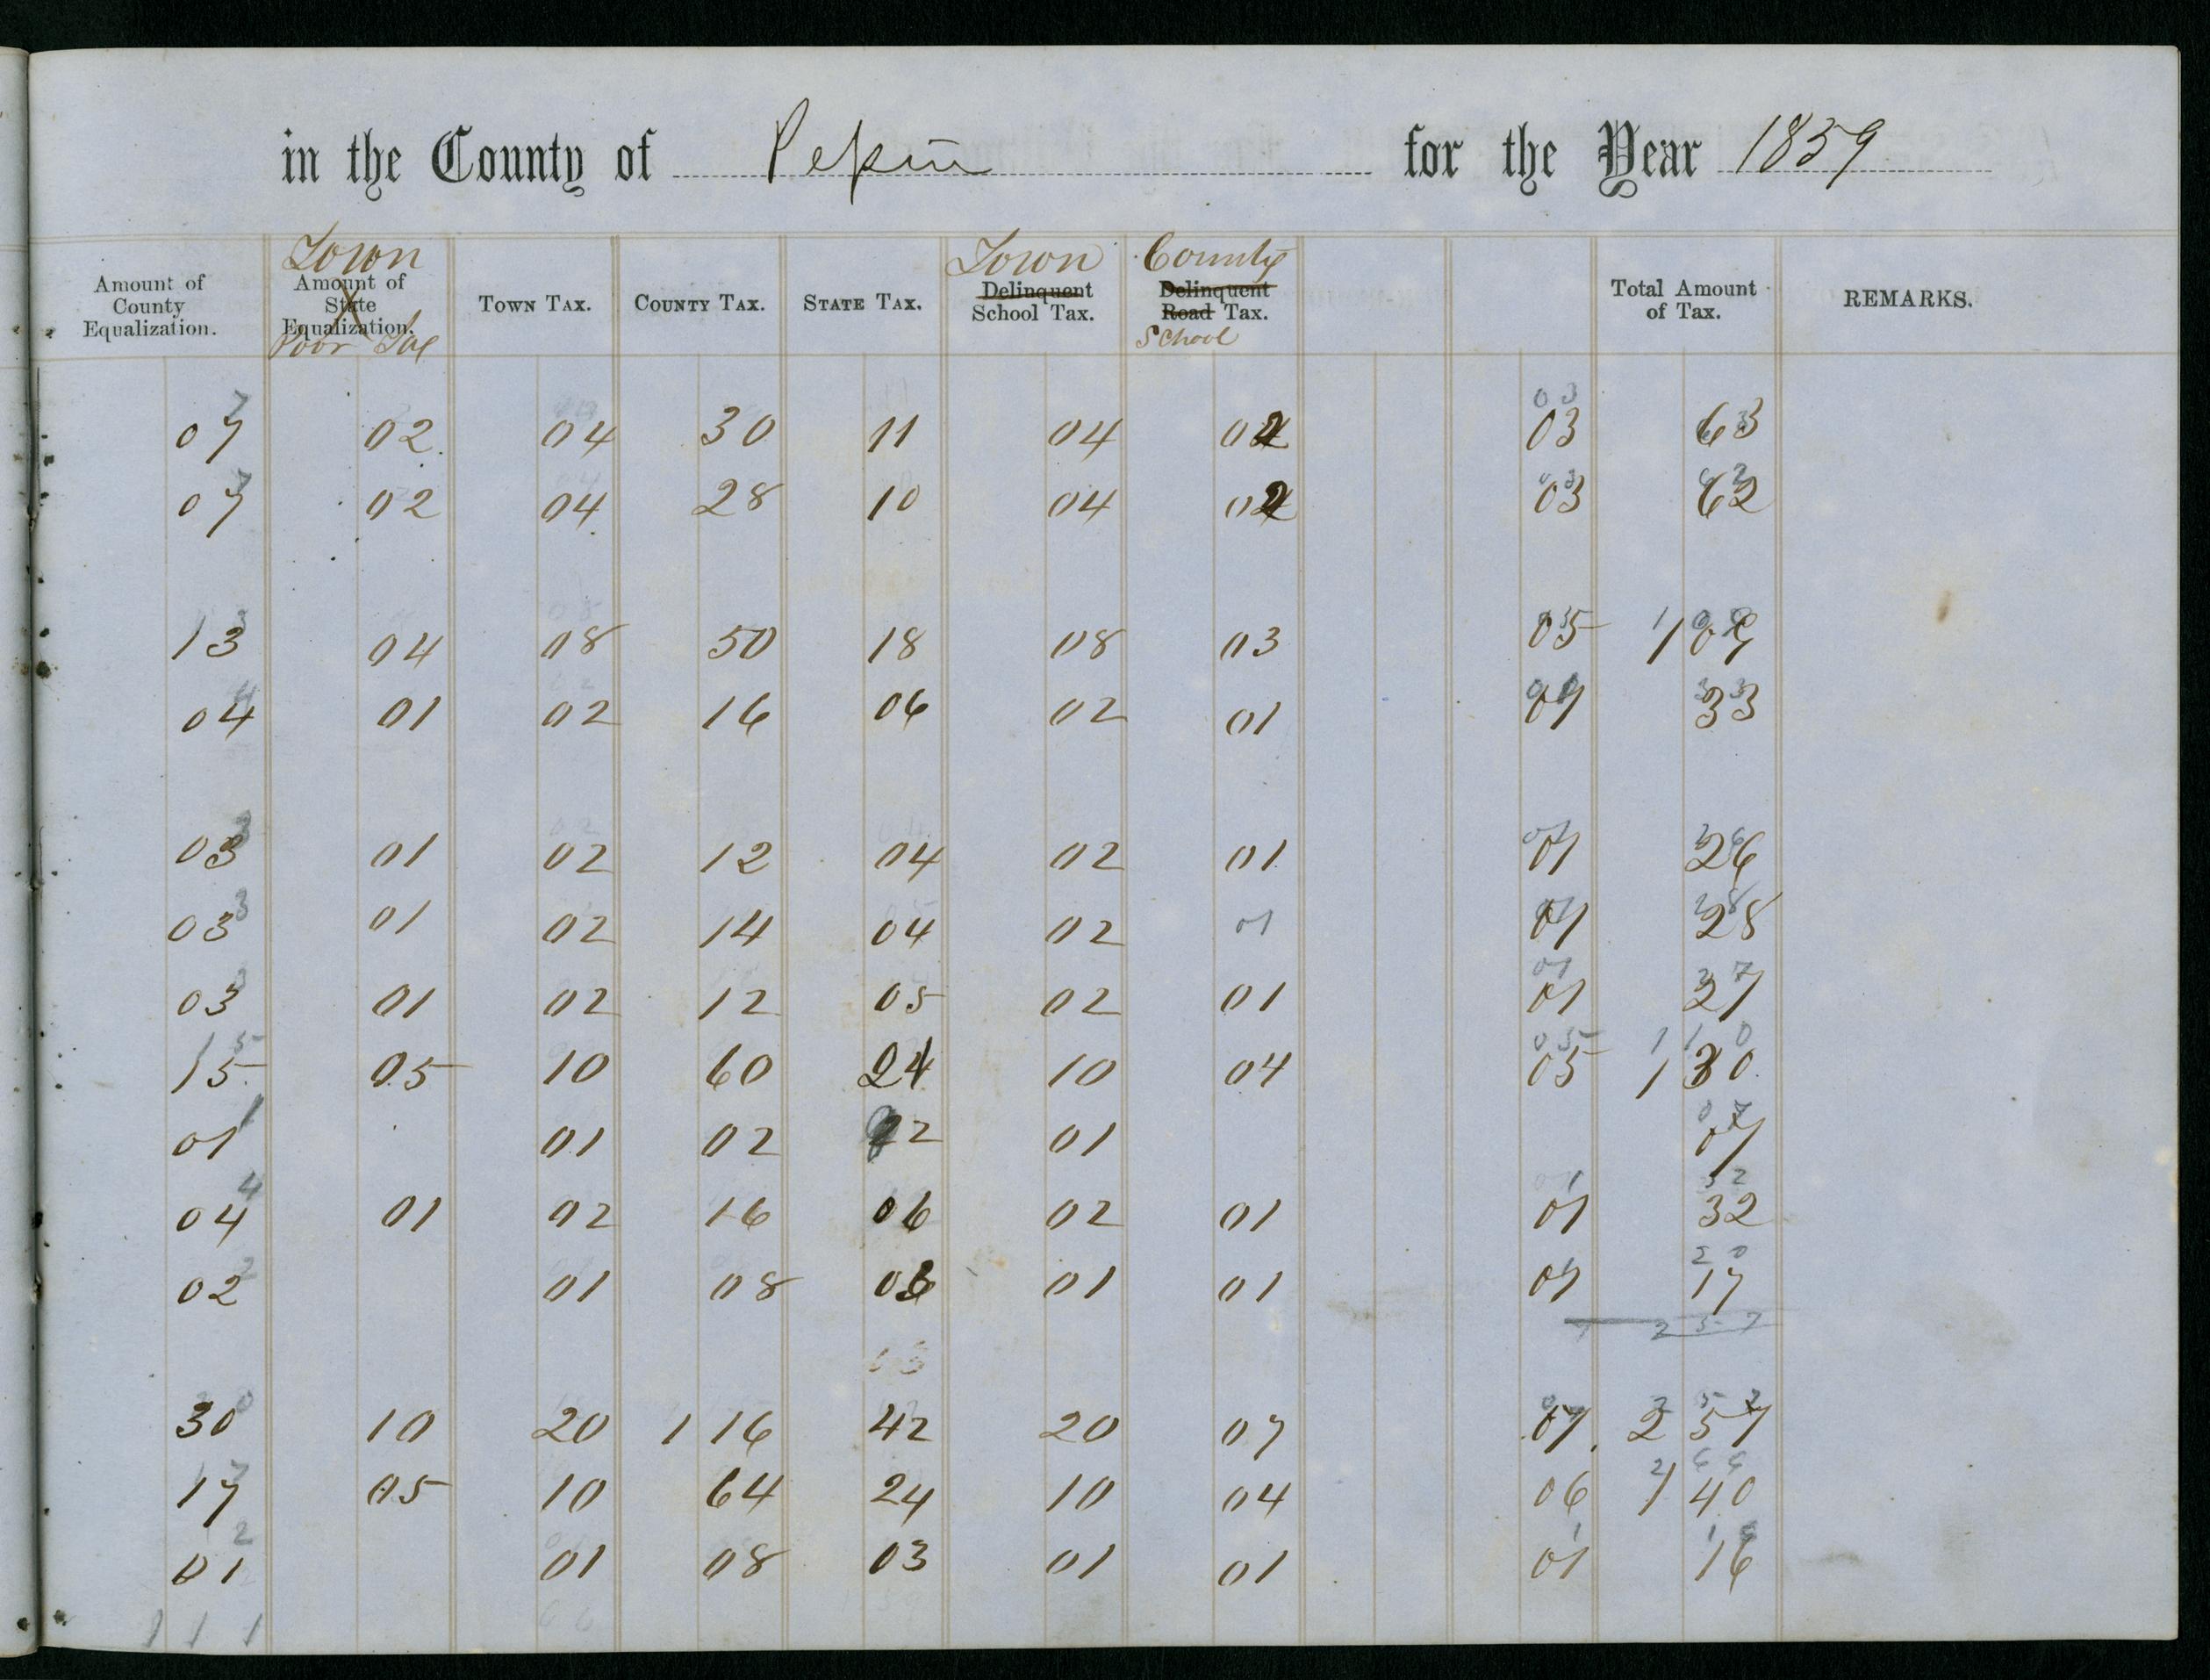 in the County of Pepin for the Year 1859
Town Town County
Amount of County Equalization. Amount of State Equalization. Poor Tax TOWN TAX. COUNTY TAX. STATE TAX. Delinquent School Tax. Delinquent Road Tax. School Total Amount of Tax. REMARKS.
07 02 04 30 11 04 02 03 63
07 02 04 28 10 04 02 03 62
13 04 08 50 18 08 03 05 1 09
04 01 02 16 06 02 01 01 33
03 01 02 12 04 02 01 01 26
03 01 02 14 04 02 01 01 28
03 01 02 12 05 02 01 01 27
15 05 10 60 24 10 04 05 1 30
01 01 02 2 01 07
04 01 02 16 06 02 01 01 32
02 01 08 03 01 01 01 17
2 57
30 10 20 1 16 42 20 07 07 2 57
17 05 10 64 24 10 04 06 1 40
01 01 08 03 01 01 01 16
1 1 1